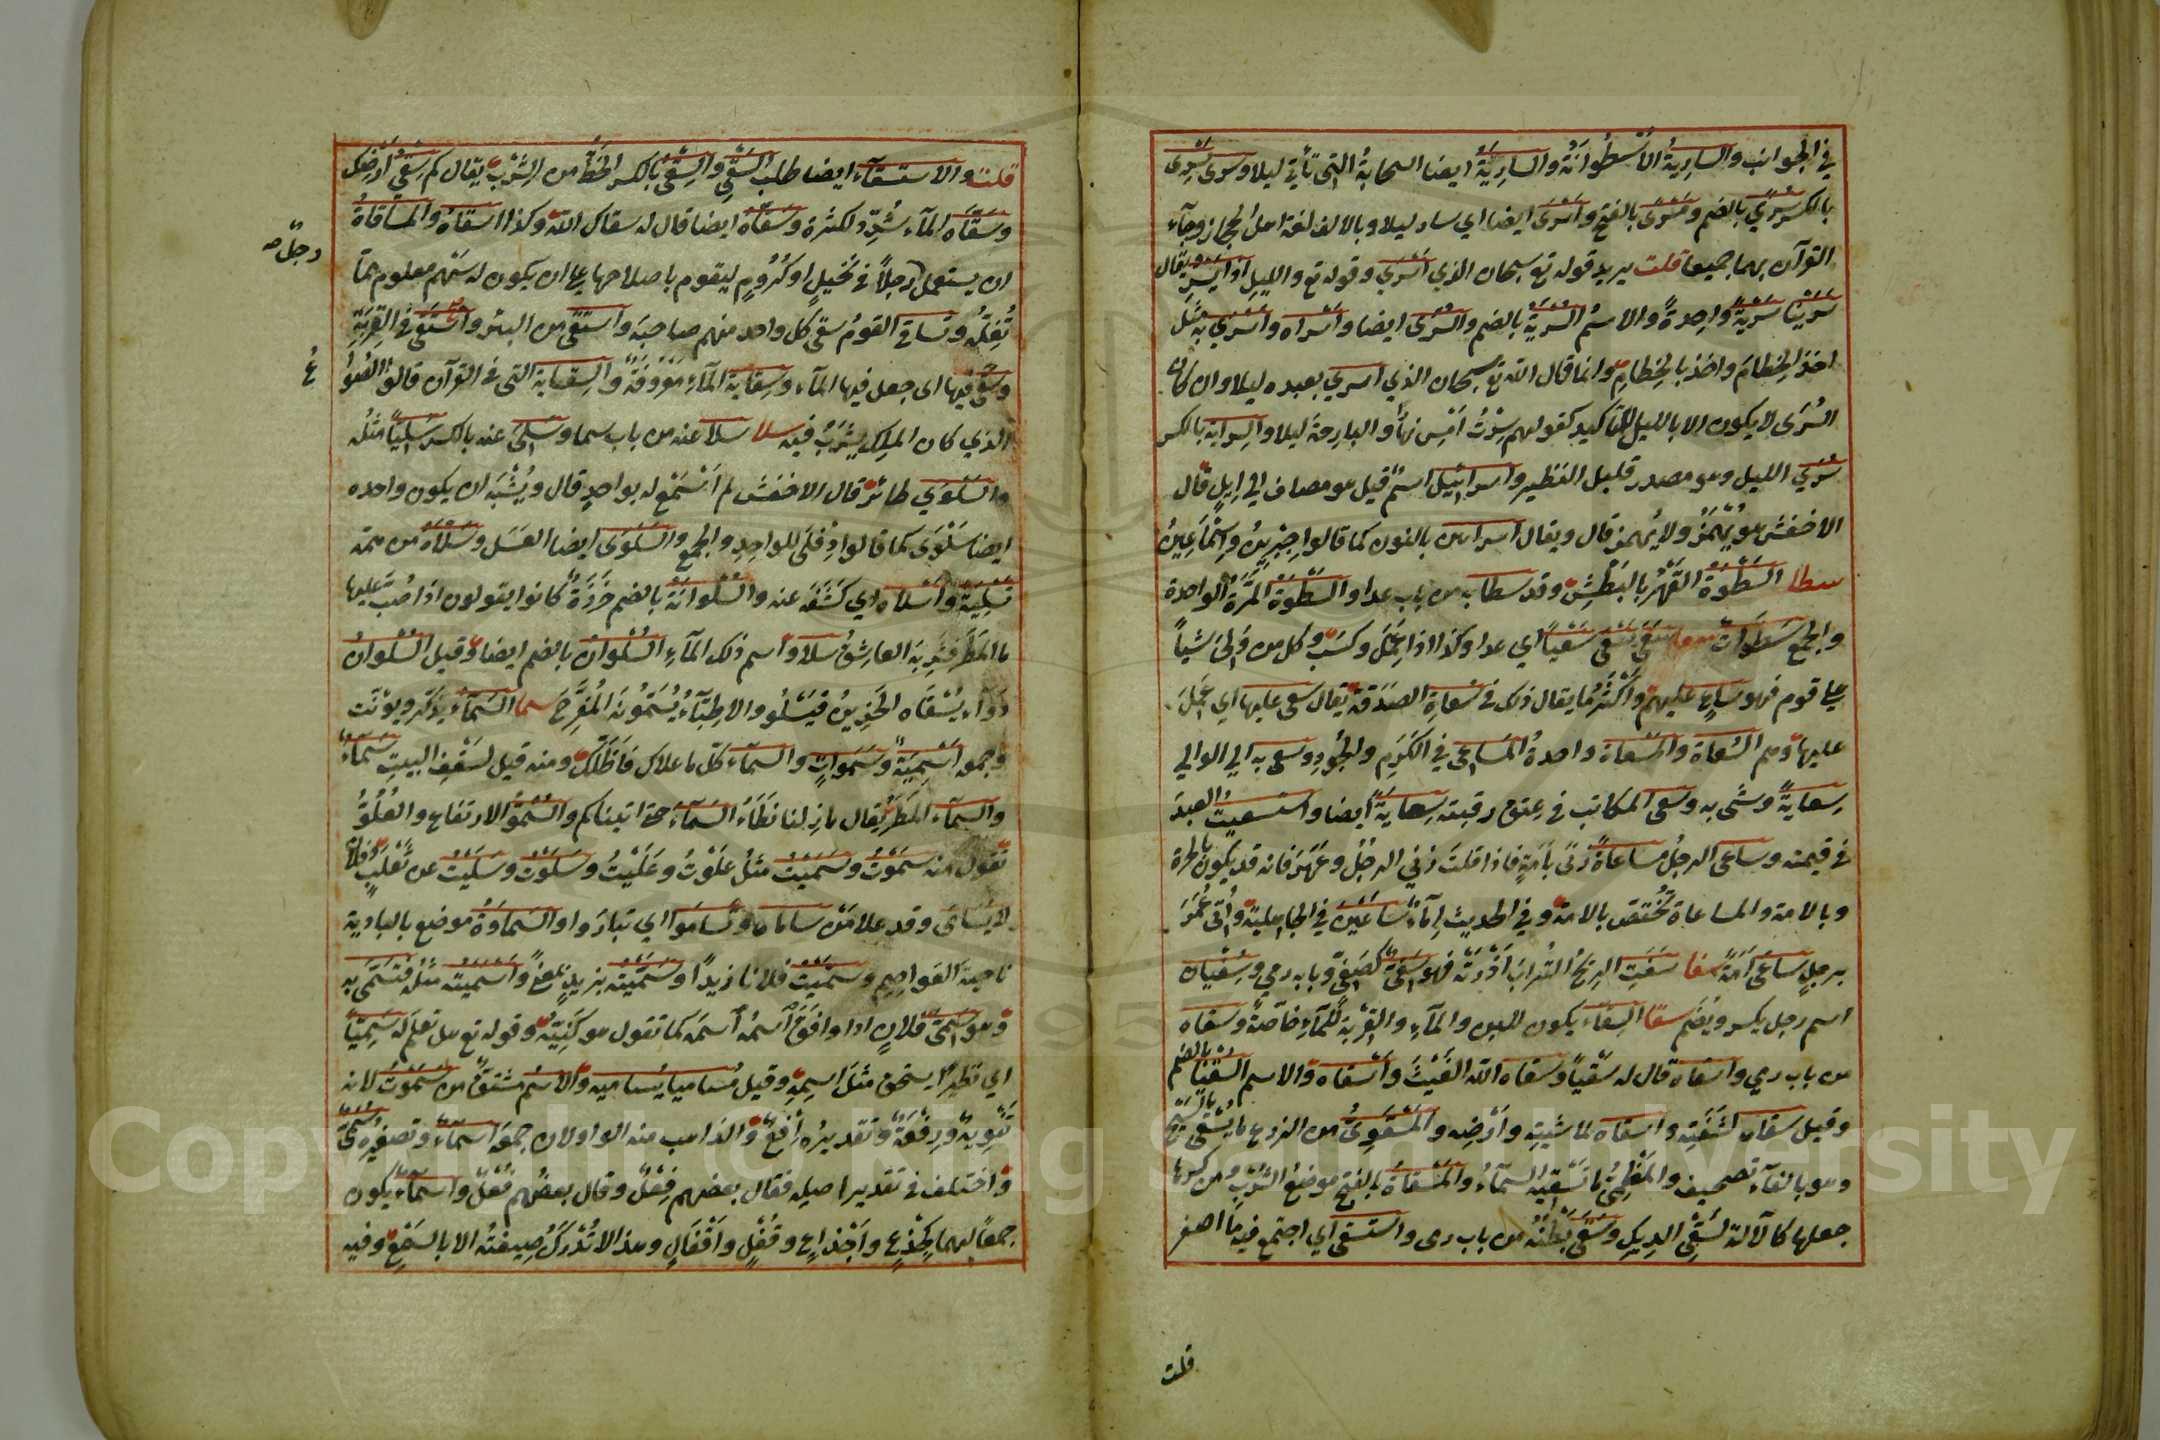 في الجوانب والسارية الأُسْطُوَانَةُ والسارِيَةُ ايضا السحابةُ التي تأتي ليلا وسرى يَسْرِى
بالكسر سُرًى بالضم ومَسْرًى بالفتح واَسْرَى ايضا اي سار ليلا وبالالف لغة اهل الحجاز وجاء
القرآن بهما جميعا قلت يريد قوله تع سبحان الذي اَسْرَي وقوله تع والليل اذا يَسْرِ ويقال
سَرَيْنَا سَرْيَةً واحِدةً والاسمُ السُرْيَةُ بالضم والسُرَى ايضا واَسْرَاه واَسْرَي به مثل
اخذ الخِطامَ واخذ بالخِطامِ وانما قال الله تع سبحان الذي اسرى بعبده ليلا وان كان
السُرَى لا يكون الا بالليل للتاكيد كقولهم سِرْتُ اَمْسِ نهاراً والبارحةَ ليلا والسِراية بالكسر
سُرَي الليل وهو مصدر قليل النظير واسرائيل اسمٌ قيل هو مضاف الي اِيلٍ قال
الاخفش هو يُهْمَزُ ولا يُهمز قال ويقال اسرايين بالنون كما قالوا جِبْرِين واِسْمَاعِينُ
سطا السَطْوَةُ القَهْرُ بالبَطْشِ وقد سطا به من باب عدا والسَطْوَةُ المَرَّةُ الواحدة
والجمع سَطَوَاتٌ سعا سَعَى يَسْعَى سَعْياً اي عدا وكذا اذا عَمَلَ وكسَبَ وكل من وَلِىَ شيئاً
على قوم فهو ساعٍ عليهم واَكْثَرُ ما يقال ذلك في سُعاةِ الصَدَقة يقال سعى عليها اي عَمِلَ
عليها وهم السُعاة والمَسْعاة واحدةُ المَساعى في الكَرَمِ والجُودِ وسعى به الي الوالي
سِعايةً وشَى به وسعى المكاتب في عتق رقبته سِعايَةً ايضا واستسعيتُ العبدَ
في قيمته وساعى الرجلُ مساعاةً زنى بأَمَةٍ فاذا قلتَ زنى الرجلُ وعَهَرَ فانه قد يكون بالحرة
وبالامة والمساعاة تَخْتصّ بالامة وفي الحديث اِماءٌ ساعَيْنَ في الجاهلية واُتِىَ عُمَرُ
برجلٍ ساعَى اَمَةً سفا سَفَتِ الريحُ الترابَ اَذْرَتْه فهو سَفِىٌّ كصَفِىّ وبابه رمي وسُفْيان
اسم رجل يكسر ويُضم سقا السِقاء يكون للبن والماءِ والقِرْبَة للماءِ خاصّةً وسقاه
من باب رمي واسقاه قال له سَقْياً وسقاه الله الغَيْثَ واَسْقاه والاسم السُقْيَا بالضم
وقيل سقاه لشَفَتِه واسقاه لماشيتِه واَرْضِه والمَسْقَوِىُّ من الزرع ما يُسْقَى بالسَّيْحِ
وهو بالفاء تصحيف والمَظْمِىُّ ما تَسْقِيه السماءُ والمَسْقاةُ بالفتح موضعُ الشُرْبِ ومن كسرها
جعلها كالآلة لسَقْىِ الديك وسَقَى بَطْنُه من باب رمى واستسقى اي اجتمع فيه ماءٌ اصفر
قلت
قلت والاستسقاء ايضا طلب السَقْىِ والسِقْىُ بالكسر الحَظُّ من الشُرْبِ يقال كم سِقْىُ اَرْضِك
وسَقَّاه الماء شُدِّد للكثرة وسَقَّاه ايضا قال له سقاك الله وكذا اسقاه والمساقاةُ
ان يستعمل رجلاً في نَخِيلٍ او كُرُومٍ ليقوم باصلاحها على ان يكون له سَهْم معلوم مما
رجلٌ
تُغِلُّه وتَساقى القومُ سقى كل واحد منهم صاحبَه واستقى من البئر واَسْتَقَى في القِرْبَةِ
وسقى فيها اى جعل فيها الماء وسِقاية الماءِ معروفةٌ والسِقاية التى فى القرآن قالوا الصُواع
الذي كان المَلِك يشرَبُ فيه سلا سلا عنه من باب سما وسَلِىَ عنه بالكسر سُلِيّاً مثله
والسَلْوَي طائر قال الاخفش لم اَسْمَع له بواحدٍ قال ويُشْبِه ان يكون واحده
ايضا سَلْوَى كما قالوا دِفْلَى للواحدِ والجمع والسَلْوَى ايضا العَسَل وسَلَّاه من همه
تَسْلِيَةً واَسْلاه اي كَشَفَه عنه والسُلْوانَةُ بالضم خَرَزَةٌ كانوا يقولون اذا صُبَّ عليها
ماءُ المَطَرِ فشَرِبَهُ العاشِقُ سلا واسم ذلك الماءِ السُلْوانُ بالضم ايضا وقيل السُلْوانُ
دَوَآء يُسْقاه الحَزِينُ فيَسْلُو والاطِبّاءُ يُسَمُّونه المُفَرِّحَ سما السماءُ يذكّر ويونّث
وجمعه اَسْمِيَةٌ وسَمَواتٍ والسماء كلّ ما علاك فاَظَلَّك ومنه قيل لسَقْفِ البيتِ سَماءٌ
والسماء المَطَرُ يقال ما زلنا نَطَأُ السماءَ حتى اتيناكم والسُمُوُّ الارتفاع والعُلُوُّ
تقول منه سَمَوْتُ وسَمَيْتُ مثلُ عَلَوْتُ وعَلَيْتُ وسَلَوْت وسَلَيْت عن ثَعْلَبٍ وفلانٌ
لا يُسامَى وقد علا مَنْ ساماه وتَسامَوْا اي تبارَوا والسَماوَةُ موضع بالبادية
ناحيةَ العَواصِمِ وسَمَّيْت فلانا زيداً وسَمَّيْته بزيدٍ بمعنىً واَسْمَيْته مثله فتسَمَّى به
وهو سَمِىُّ فلانٍ اذا وافَقَ اسمُه اسمَه كما تقول هو كَنِيُّه وقوله تع هل تعلم له سَمِيّاً
اي نظيراً يستحق مثلَ اسمِه وقيل مُسامِيا يُساميه والاسْم مشتقٌّ من سَمَوْتُ لانه
تَنْوِيهٌ ورِفْعَةٌ وتقديرُه اِفْعٌ والذاهب منه الواو لان جمعَه اسماءٌ وتصغيرُه سُمَىٌّ
واختلف في تقدير اصله فقال بعضهم فِعْلٌ وقال بعضهم فُعْلٌ واسماءٌ يكون
جمعاً لهما كجِذْعٍ واَجْذاعٍ وقُفْلٍ واَقْفالٍ وهذا لا تُدْرَكُ صِيغتُه الا بالسَمْعِ وفيه
Copyright © King Saud University